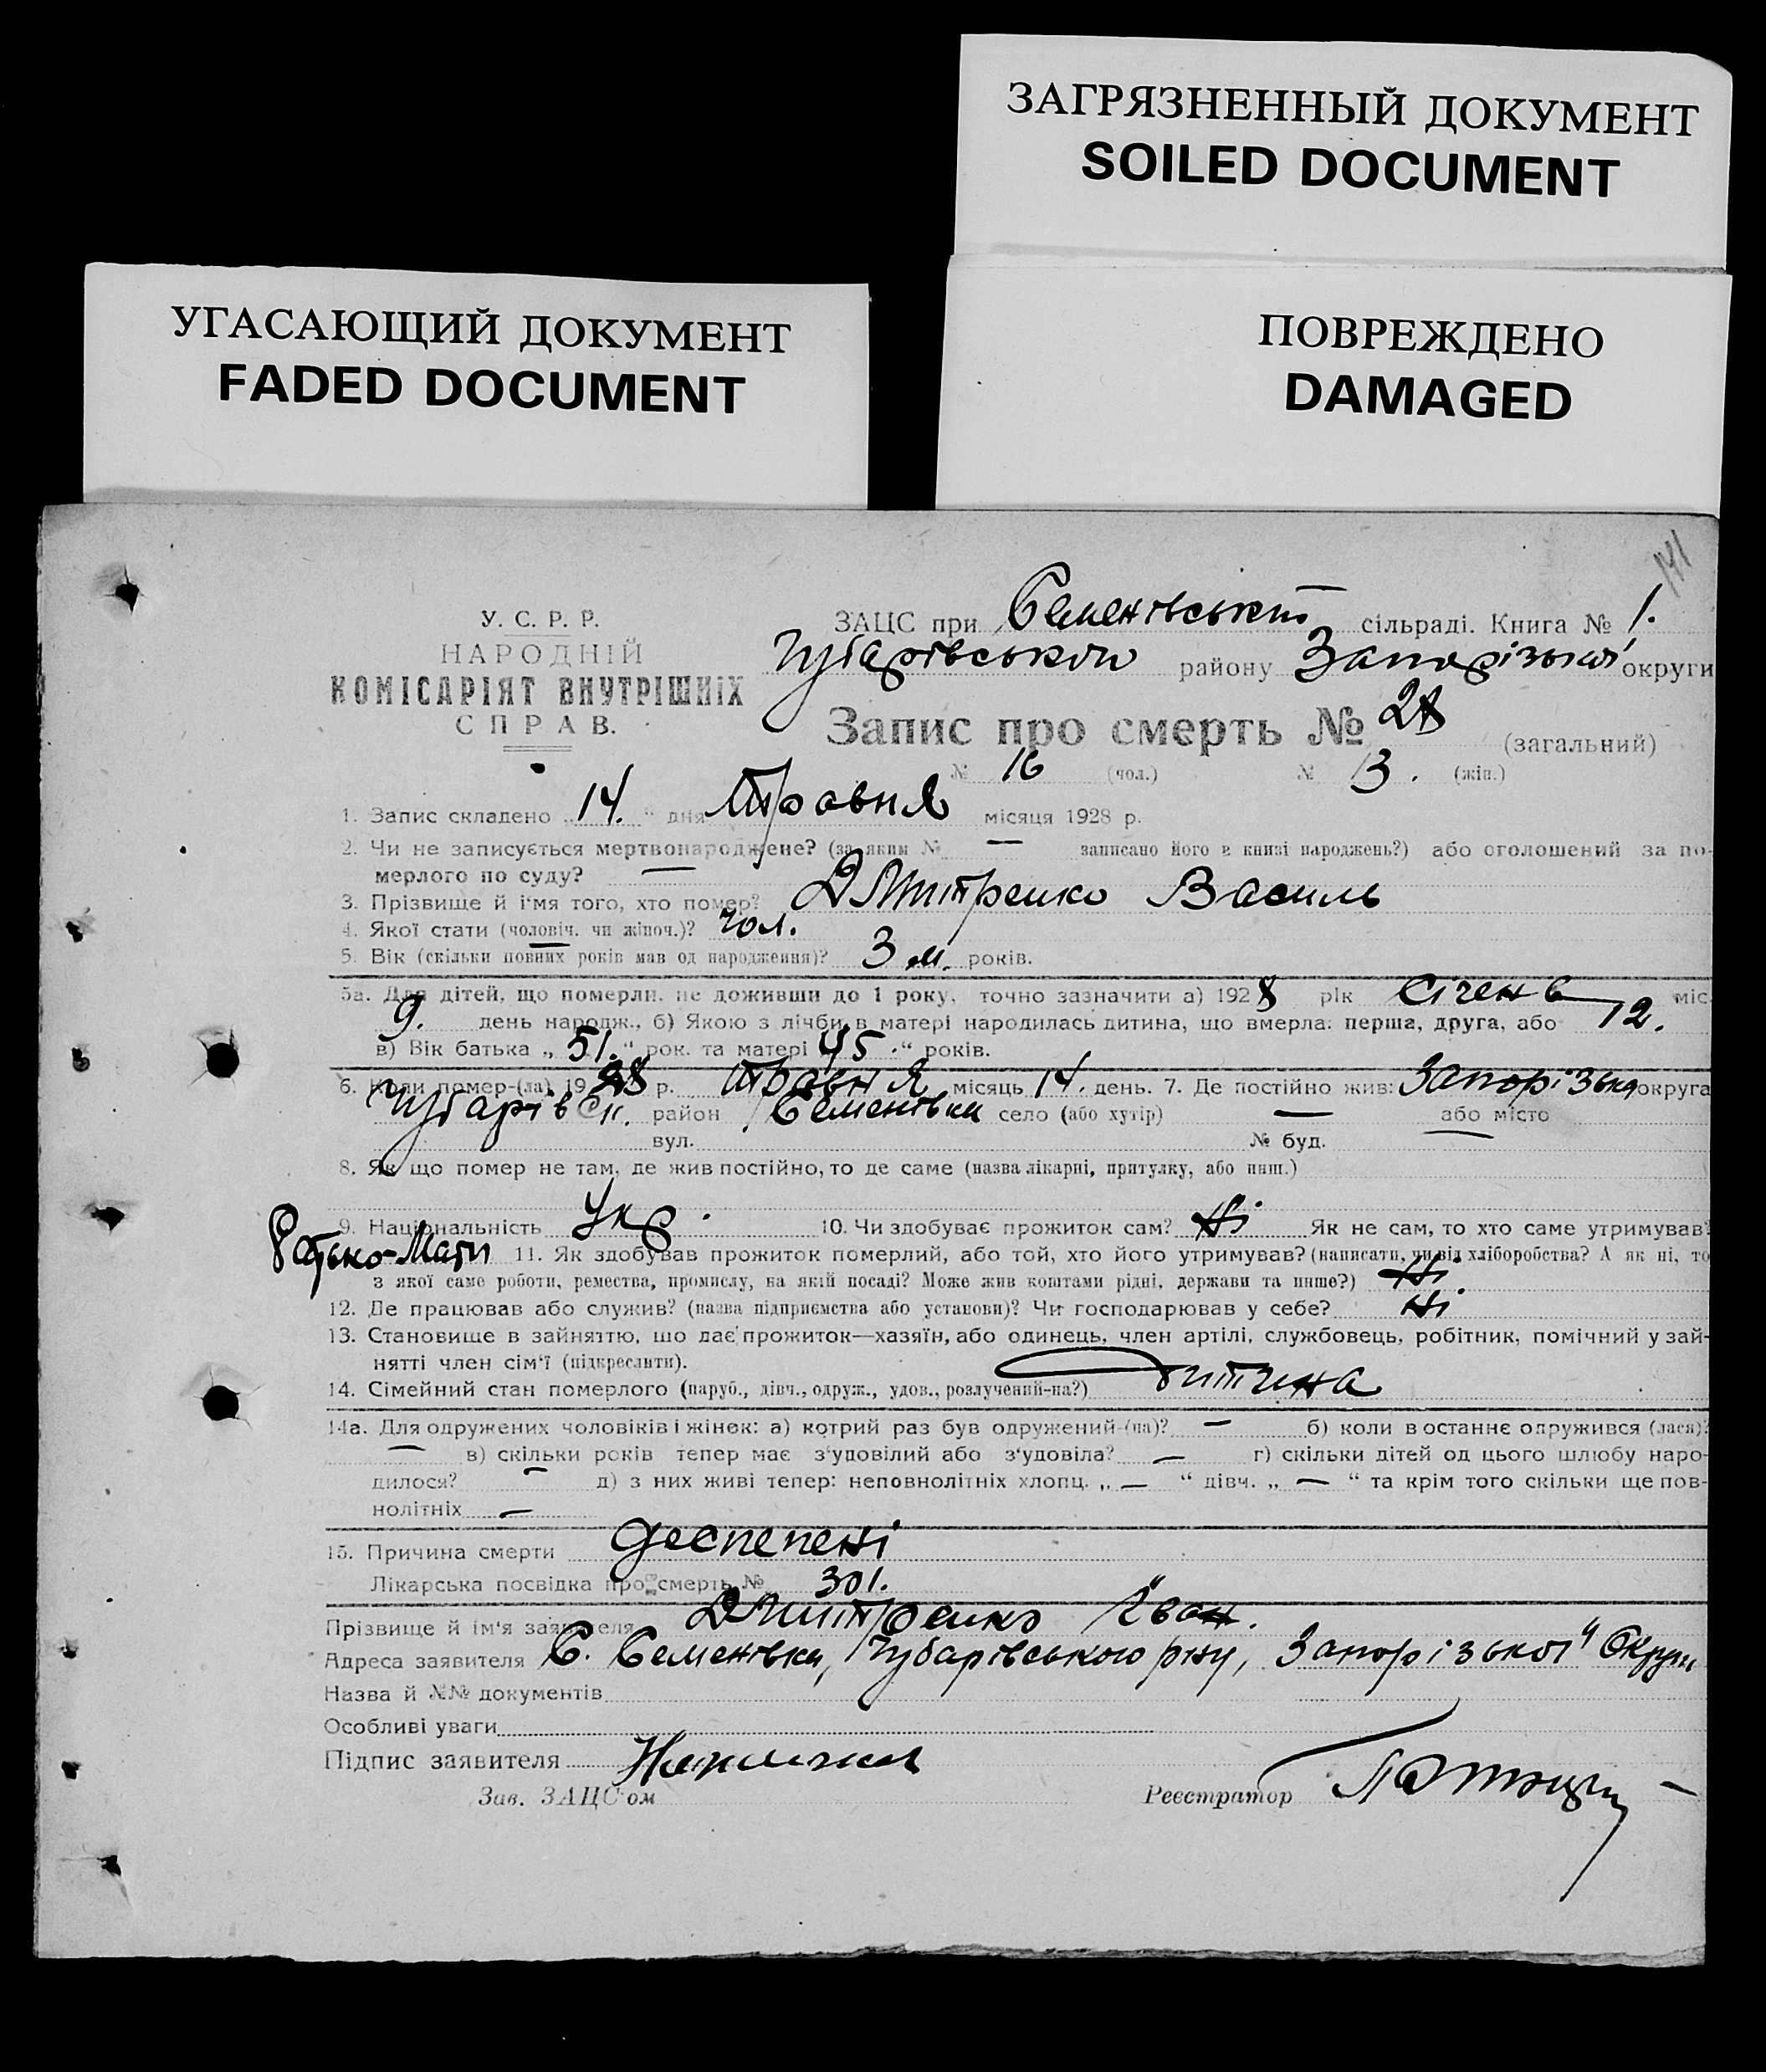 ЗАГРЯЗНЕННЫЙ ДОКУМЕНТ
SOILED DOCUMENT
УГАСАЮЩИЙ ДОКУМЕНТ
FADED DOCUMENT
ПОВРЕЖДЕНО
DAMAGED
141
У. С. Р. Р.
НАРОДНІЙ
КОМІСАРІЯТ ВНУТРІШНІХ
СПРАВ.
ЗАЦС при Семенівській сільраді. Книга № 1.
Чубарівськои району Запорізькоі округи
Запис про смерть № 28 (загальний)
№ 16 (чол.) № 13. (жін.)
1. Запис складено „14.“ дня Травня місяця 1928 р.
2. Чи не записується мертвонароджене? (за яким № — записано його в книзі народжень?) або оголошений за по-
мерлого по суду? —
3. Прізвище й і'мя того, хто помер? Дмитренко Василь
4. Якої статі (чоловіч. чи жіноч.)? чол.
5. Вік (скільки повних років мав од народження)? 3 м. років.
5а. Для дітей, що померли, не доживши до 1 року, точно зазначити а) 1928 рік Січень міс.
9. день народж., б) Якою з лічби в матері народилась дитина, що вмерла: перша, друга, або 12.
в) Вік батька „51.“ рок. та матері „45.“ років.
6. Коли помер-(ла) 1928 р. Травня місяць 14. день. 7. Де постійно жив: Запорізька округа
Чубарівськ. район Семенівка село (або хутір) — або місто —
вул. № буд.
8. Як що помер не там, де жив постійно, то де саме (назва лікарні, притулку, або инш.)
9. Національність Укр. 10. Чи здобуває прожиток сам? Ні Як не сам, то хто саме утримував?
Батько-Мати 11. Як здобував прожиток померлий, або той, хто його утримував? (написати, чи від хліборобства? А як ні, то
з якої саме роботи, ремества, промислу, на якій посаді? Може жив коштами рідні, держави та инше?) Ні
12. Де працював або служив? (назва підприємства або установи)? Чи господарював у себе? Ні
13. Становище в зайняттю, що дає прожиток—хазяїн, або одинець, член артілі, службовець, робітник, помічний у зай-
нятті член сім'ї (підкреслити).
14. Сімейний стан померлого (паруб., дівч., одруж., удов., розлучений-на?) Дитина
14а. Для одружених чоловіків і жінок: а) котрий раз був одружений-(на)? — б) коли в останнє одружився (лася)?
— в) скільки років тепер має з'удовілий або з'удовіла? — г) скільки дітей од цього шлюбу наро-
дилося? — д) з них живі тепер: неповнолітніх хлопц. „—“ дівч. „—“ та крім того скільки ще пов-
нолітніх —
15. Причина смерти
Лікарська посвідка про смерть № 301.
Прізвище й ім'я заявителя Дмитренко Іван.
Адреса заявителя С. Семенівка, Чубарівського р-ну, Запорізькоі Округи
Назва й №№ документів
Особливі уваги
Підпис заявителя
Зав. ЗАЦС'ом Реєстратор